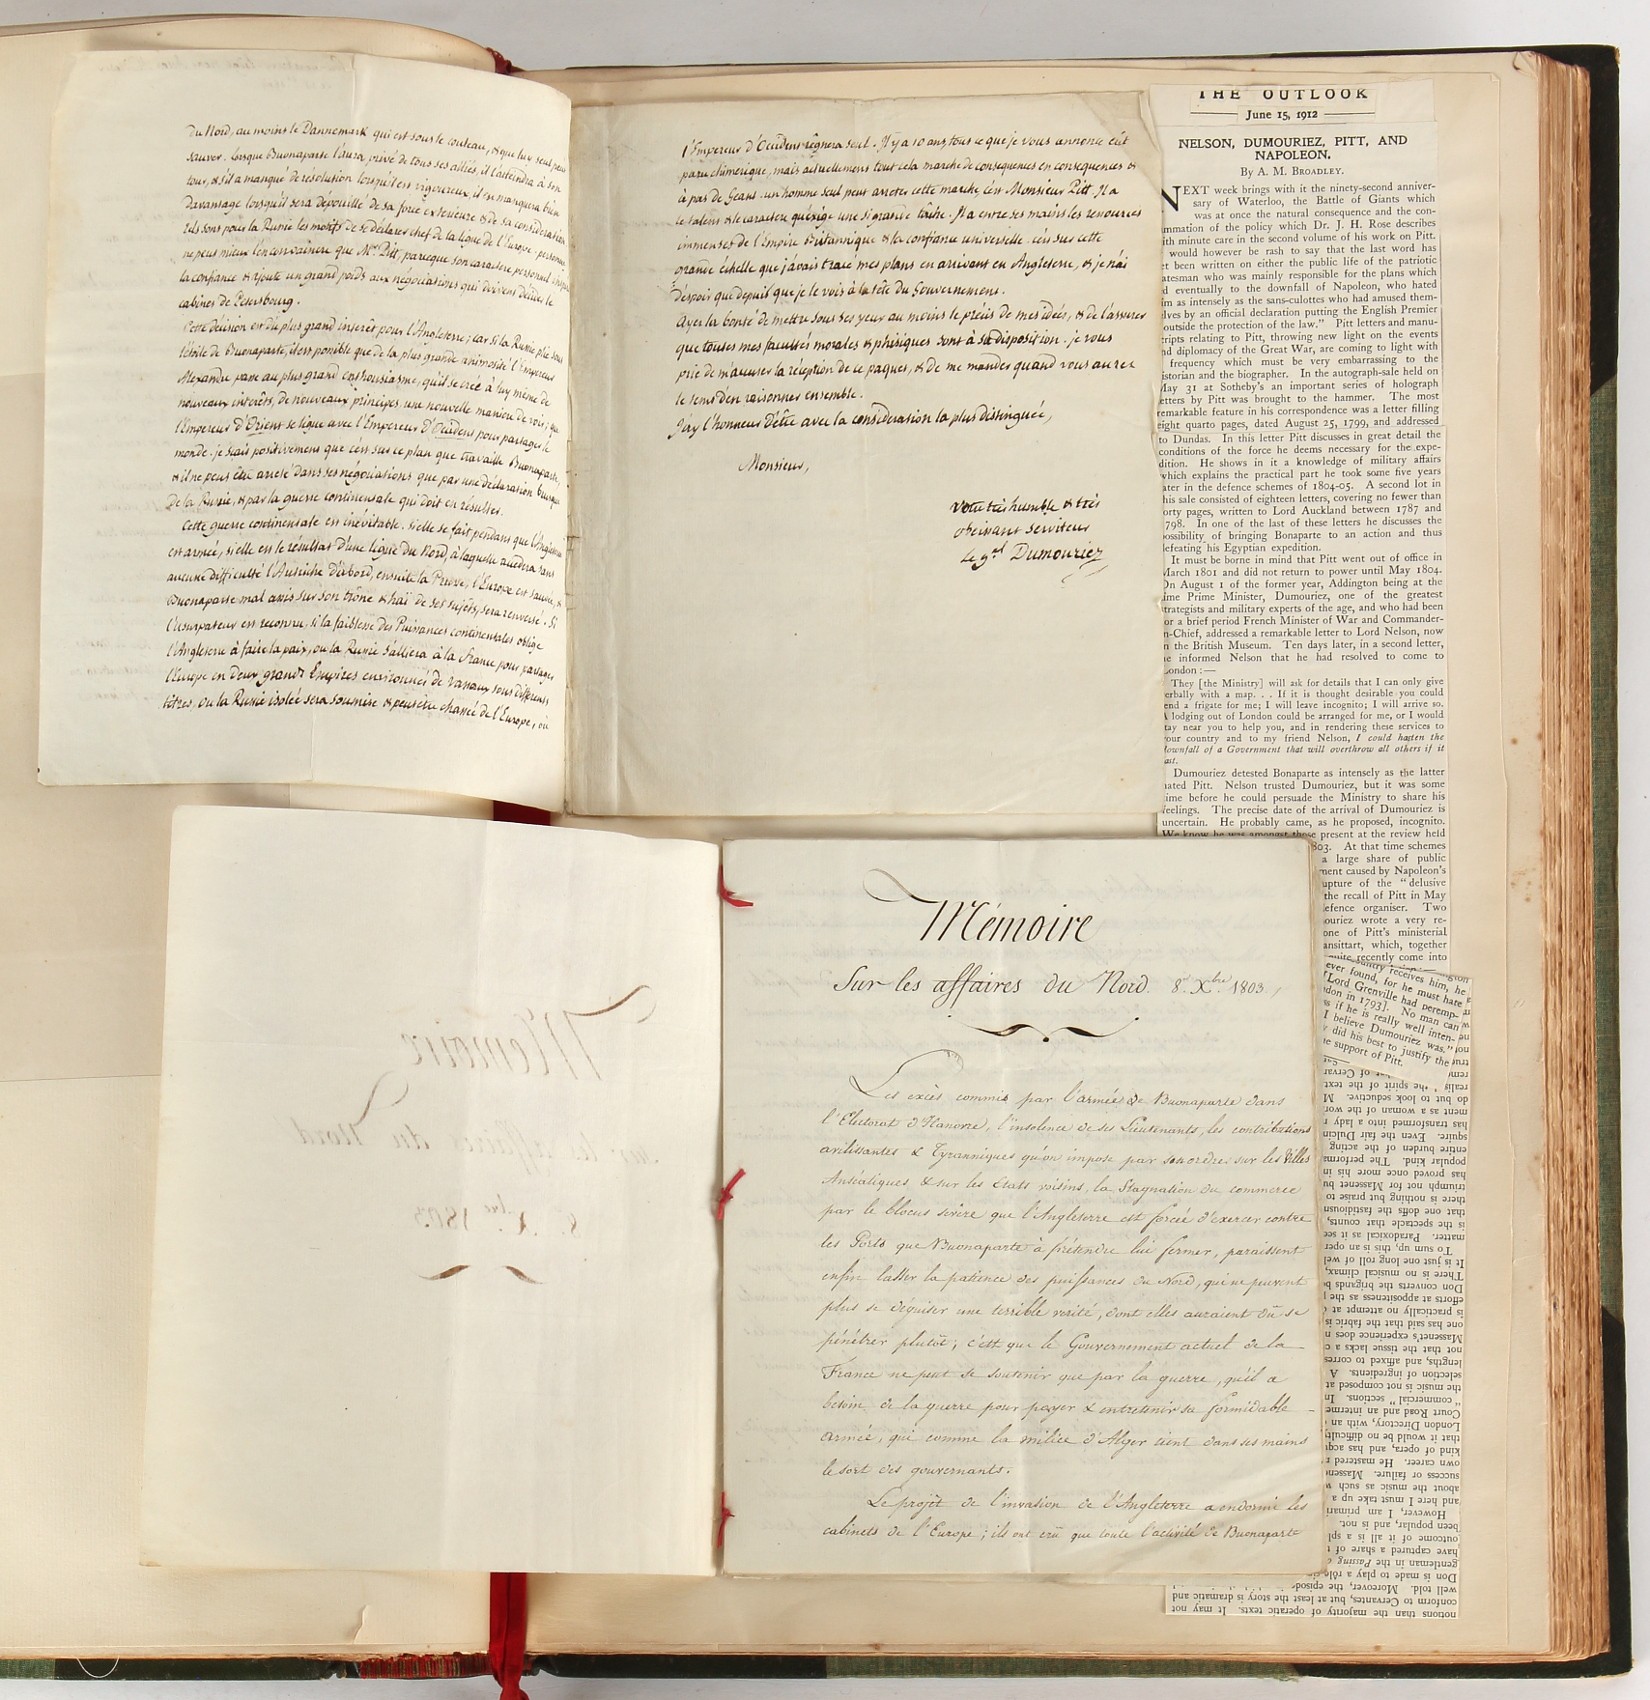 du Nord, au moins le Dannemark qui est sous le couteau, & que luy seul peut
sauver. lorsque Buonaparte l'aura privé de tous ses alliés, il l'atteindra à son
tour, & s'il a manqué de resolution lorsqu'il est vigoureux, il en manquera bien
davantage lorsqu'il sera depouillé de sa force exterieure & de sa consideration
tels sont pour la Russie les motifs de se déclarer chef de la ligue de l'Europe. personne
ne peut mieux l'en convaincre que Mr. Pitt, parceque son caractere personnel inspire
la confiance & ajoute un grand poids aux négociations qui doivent décider le
cabinet de Petersbourg.
Cette décision est du plus grand interêt pour l'Angleterre; car si la Russie plie sous
l'étoile de Buonaparte, il est possible que de la plus grande animosité l'Empereur
Alexandre passe au plus grand enthousiasme, qu'il se crée à luy même de
nouveaux interêts, de nouveaux principes, une nouvelle maniere de voir; que
l'Empereur d'Orient se ligue avec l'Empereur d'Occident pour partager le
monde. je sçais positivement que c'est sur ce plan que travaille Buonaparte,
& il ne peut être arreté dans ses négociations que par une déclaration brusque
de la Russie, & par la guerre continentale qui doit en résulter.
Cette guerre continentale est inévitable. si elle se fait pendant que l'Angleterre
est armée, si elle est le résultat d'une ligue du Nord, à laquelle accedera sans
aucune difficulté l'Autriche d'abord, ensuite la Prusse, l'Europe est sauvée, &
Buonaparte mal assis sur son trône & haï de ses sujets, sera renversé. Si
l'usurpateur est reconnu, si la faiblesse des Puissances continentales oblige
l'Angleterre à faire la paix, ou la Russie s'alliera à la France pour partager
l'Europe en deux grands Empires environnés de vassaux sous differents
titres, ou la Russie isolée sera soumise & peutêtre chassée de l'Europe, où
l'Empereur d'Occident régnera seul. Il y a 10 ans, tout ce que je vous annonce eût
paru chimerique, mais actuellement tout cela marche de consequences en consequences &
à pas de Geant. un homme seul peut arreter cette marche, c'est Monsieur Pitt. Il a
le talent & le caractere qu'exige une si grande tâche. Il a entre ses mains les ressources
immenses de l'Empire Britannique & la confiance universelle. c'est sur cette
grande échelle que j'avais tracé mes plans en arrivant en Angleterre, & je n'ai
d'espoir que depuis que je le vois à la tête du Gouvernement.
Ayez la bonté de mettre sous ses yeux au moins le précis de mes idées, & de l'assurer
que toutes mes facultés morales & phisiques sont à sa disposition. je vous
prie de m'accuser la réception de ce paquet, & de me mander quand vous aurez
le tems d'en raisonner ensemble.
J'ay l'honneur d'être avec la consideration la plus distinguée,
Monsieur,
votre très humble & très
obeissant serviteur
Le gal Dumouriez
THE OUTLOOK
June 15, 1912
NELSON, DUMOURIEZ, PITT, AND
NAPOLEON.
By A. M. BROADLEY.
NEXT week brings with it the ninety-second anniver-
sary of Waterloo, the Battle of Giants which
was at once the natural consequence and the con-
mmation of the policy which Dr. J. H. Rose describes
ith minute care in the second volume of his work on Pitt.
would however be rash to say that the last word has
t been written on either the public life of the patriotic
atesman who was mainly responsible for the plans which
d eventually to the downfall of Napoleon, who hated
im as intensely as the sans-culottes who had amused them-
lves by an official declaration putting the English Premier
outside the protection of the law." Pitt letters and manu-
ripts relating to Pitt, throwing new light on the events
nd diplomacy of the Great War, are coming to light with
frequency which must be very embarrassing to the
istorian and the biographer. In the autograph-sale held on
May 31 at Sotheby's an important series of holograph
etters by Pitt was brought to the hammer. The most
remarkable feature in his correspondence was a letter filling
eight quarto pages, dated August 25, 1799, and addressed
to Dundas. In this letter Pitt discusses in great detail the
conditions of the force he deems necessary for the expe-
dition. He shows in it a knowledge of military affairs
which explains the practical part he took some five years
ater in the defence schemes of 1804-05. A second lot in
his sale consisted of eighteen letters, covering no fewer than
orty pages, written to Lord Auckland between 1787 and
798. In one of the last of these letters he discusses the
ossibility of bringing Bonaparte to an action and thus
efeating his Egyptian expedition.
It must be borne in mind that Pitt went out of office in
March 1801 and did not return to power until May 1804.
On August 1 of the former year, Addington being at the
ime Prime Minister, Dumouriez, one of the greatest
trategists and military experts of the age, and who had been
or a brief period French Minister of War and Commander-
n-Chief, addressed a remarkable letter to Lord Nelson, now
n the British Museum. Ten days later, in a second letter,
e informed Nelson that he had resolved to come to
London:—
They [the Ministry] will ask for details that I can only give
erbally with a map. . . If it is thought desirable you could
end a frigate for me; I will leave incognito; I will arrive so.
A lodging out of London could be arranged for me, or I would
tay near you to help you, and in rendering these services to
our country and to my friend Nelson, I could hasten the
downfall of a Government that will overthrow all others if it
ast.
Dumouriez detested Bonaparte as intensely as the latter
hated Pitt. Nelson trusted Dumouriez, but it was some
ime before he could persuade the Ministry to share his
feelings. The precise date of the arrival of Dumouriez is
uncertain. He probably came, as he proposed, incognito.
We know he was amongst those present at the review held
803. At that time schemes
a large share of public
ment caused by Napoleon's
upture of the "delusive
the recall of Pitt in May
efence organiser. Two
ouriez wrote a very re-
one of Pitt's ministerial
ansittart, which, together
quite recently come into
untry receives him, he
ever found, for he must hate
[Lord Grenville had peremp-
don in 1793]. No man can
s if he is really well inten-
I believe Dumouriez was."
y did his best to justify the
e support of Pitt.
Mémoire
Sur les affaires du Nord. 8. Xbre. 1803.
Les excès commis par l'armée de Buonaparte dans
l'Electorat d'Hanovre, l'insolence de ses Lieutenants, les contributions
avilissantes & Tyranniques qu'on impose par son ordre sur les Villes
Anséatiques & sur les Etats voisins, la Stagnation du commerce
par le blocus sévère que l'Angleterre est forcée d'exercer contre
les Ports que Buonaparte a prétendu lui fermer, paraissent
enfin lasser la patience des puissances du Nord, qui ne peuvent
plus se déguiser une terrible vérité, dont elles auraient dû se
pénétrer plutôt; c'est que le Gouvernement actuel de la
France ne peut se soutenir que par la guerre, qu'il a
besoin de la guerre pour payer & entretenir sa formidable
armée, qui comme la milice d'Alger tient dans ses mains
le sort des gouvernants.
Le projet de l'invasion de l'Angleterre a endormi les
cabinets de l'Europe; ils ont crû que toute l'activité de Buonaparte
notions than the majority of operatic texts. It may not
conform to Cervantes, but at least the story is dramatic and
well told. Moreover, the episod
Don is made to play a rôle
gentleman in the Passing
have captured a share of t
outcome of it all is a spl
been popular, and is not.
However, I am primari
and here I must take up a
about the music as such w
success or failure. Massen
own career. He mastered
kind of opera, and has acq
that it would be no difficult
London Directory, with an
Court Road and an interme
"commercial" sections. In
the music is not composed at
selection of ingredients. A
lengths, and affixed to corres
not that the tissue lacks a c
Massenet's experience does n
one has said that the fabric is
is practically no attempt at
efforts at appositeness as the
Don converts the brigands b
There is no musical climax,
It is just one long roll of wel
To sum up, this is an oper
matter. Paradoxical as it see
is the spectacle that counts,
that one doffs the fastidious
there is nothing but praise to
triumph not for Massenet bu
has proved once more his in
popular kind. The performa
entire burden of the acting
squire. Even the fair Dulcin
has transformed into a lady
ment as a woman of the wor
do but to look seductive. M
realis the spirit of the text
of Cervan